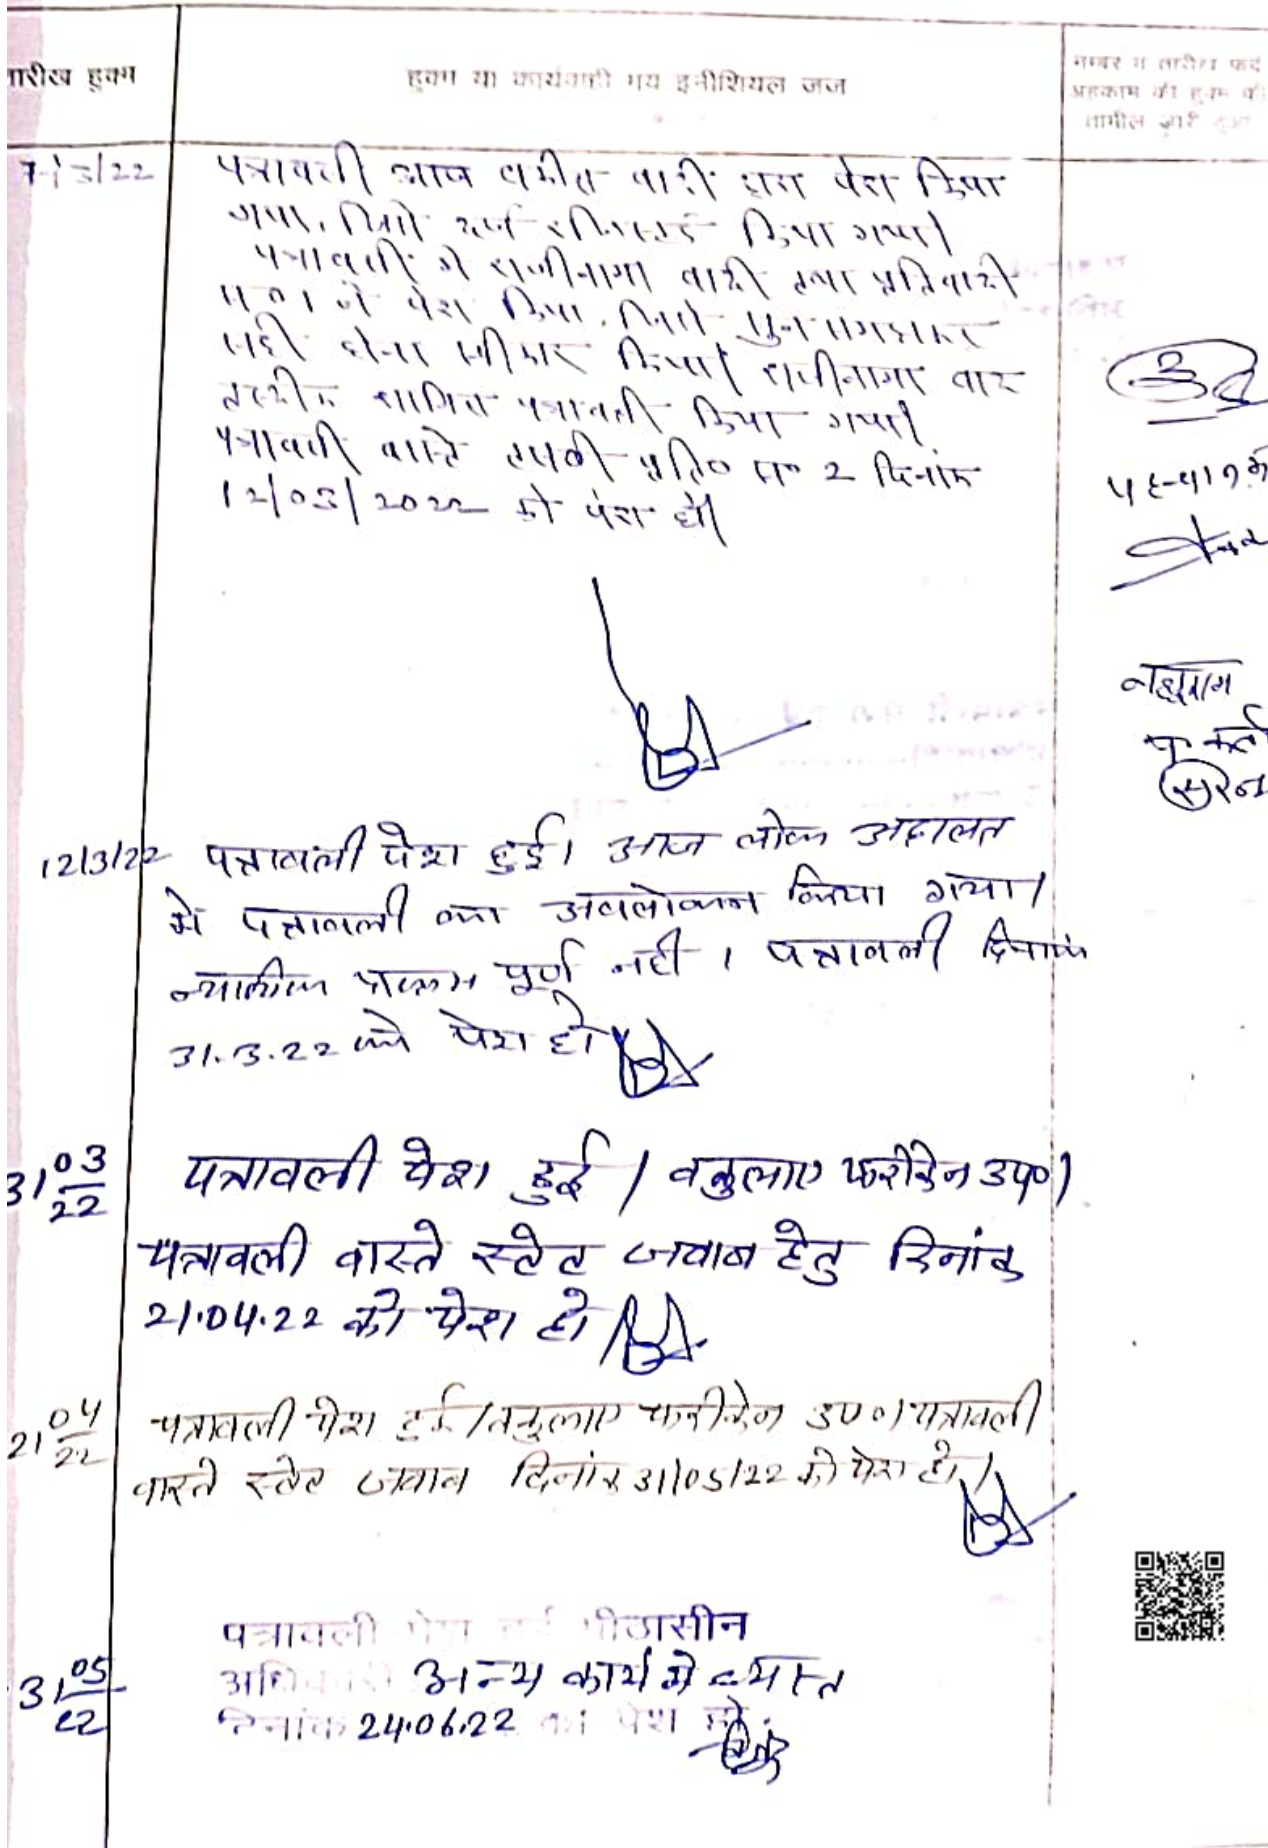 तारीख हुक्म
हुक्म या कार्यवाही मय इनीशियल जज
नम्बर व तारीख फर्द
अहकाम की हुक्म की
तामील जारी हुआ
7/3/22
पत्रावली आज वकील वादी द्वारा पेश किया
गया, जिसे दर्ज रजिस्टर्ड किया गया।
पत्रावली में राजीनामा वादी तथा प्रतिवादी
ने पेश किया, जिसे
सही होना स्वीकार किया। राजीनामा बाद
तस्दीक शामिल पत्रावली किया गया।
पत्रावली वास्ते तलबी प्रति० स० 2 दिनांक
12/03/2022 को पेश हो।
12/3/22
पत्रावली पेश हुई। आज लोक अदालत
में पत्रावली का अवलोकन किया गया।
पूर्ण नही। पत्रावली दिनांक
31.3.22 को पेश हो
31 03/22
पत्रावली पेश हुई। वकुलाए फरीकेन उप०।
पत्रावली वास्ते स्टेट जवाब हेतु दिनांक
21.04.22 को पेश हो।
21 04/22
पत्रावली पेश हुई। वकुलाए फरीकेन उप०। पत्रावली
वास्ते स्टेट जवाब दिनांक 31/05/22 को पेश हो।
31 05/22
पत्रावली पेश हुई पीठासीन
अधिकारी अन्य कार्य में व्यस्त
दिनांक 24.06.22 को पेश हो